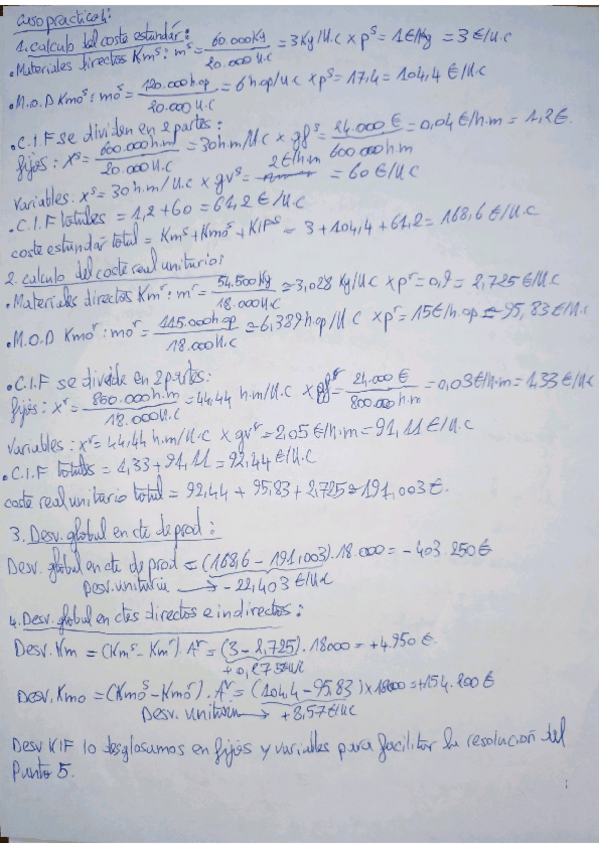 caso practico 1:
1. calculo del coste estándar:
• Materiales directos Kmˢ: mˢ = 60.000Kg / 20.000 u.c = 3Kg/u.c x pˢ = 1€/Kg = 3€/u.c
• M.O.D Kmoˢ: moˢ = 120.000h.op / 20.000 u.c = 6h.op/u.c x pˢ = 17,4 = 104,4€/u.c
• C.I.F se dividen en 2 partes:
fijos: xˢ = 600.000h.m / 20.000 u.c = 30h.m/u.c x gfˢ = 24.000€ / 600.000h.m = 0,04€/h.m = 1,2€.
Variables: xˢ = 30h.m/u.c x gvˢ = 2€/h.m = 60€/uc
• C.I.F totales = 1,2 + 60 = 61,2€/u.c
coste estándar total = Kmˢ + Kmoˢ + KIFˢ = 3 + 104,4 + 61,2 = 168,6€/u.c
2. calculo del coste real unitario:
• Materiales directos Kmʳ: mʳ = 54.500Kg / 18.000u.c ≃ 3,028 Kg/uc x pʳ = 0,9 = 2,725€/u.c
• M.O.D Kmoʳ: moʳ = 115.000h.op / 18.000u.c ≃ 6,389h.op/u.c x pʳ = 15€/h.op ≃ 95,83€/u.c
• C.I.F se divide en 2 partes:
fijos: xʳ = 800.000h.m / 18.000u.c = 44,44 h.m/u.c x gfʳ = 24.000€ / 800.000h.m = 0,03€/h.m = 1,33€/uc
Variables: xʳ = 44,44 h.m/u.c x gvʳ = 2,05€/h.m = 91,11€/u.c
• C.I.F totales = 1,33 + 91,11 = 92,44€/u.c
coste real unitario total = 92,44 + 95,83 + 2,725 ≃ 191,003€.
3. Desv. global en cte de prod:
Desv. global en cte de prod = (168,6 - 191,003).18.000 = - 403.250€
Desv. unitaria → - 22,403€/uc
4. Desv. global en ctes directos e indirectos:
Desv. Km = (Kmˢ - Kmʳ). Aʳ = (3 - 2,725).18000 = +4.950€.
+0,275€/uc
Desv. Kmo = (Kmoˢ - Kmoʳ). Aʳ = (104,4 - 95,83) x 18000 = +154.200€
Desv. unitaria → +8,57€/uc
Desv KIF lo desglosamos en fijos y variables para facilitar la resolución del
Punto 5.